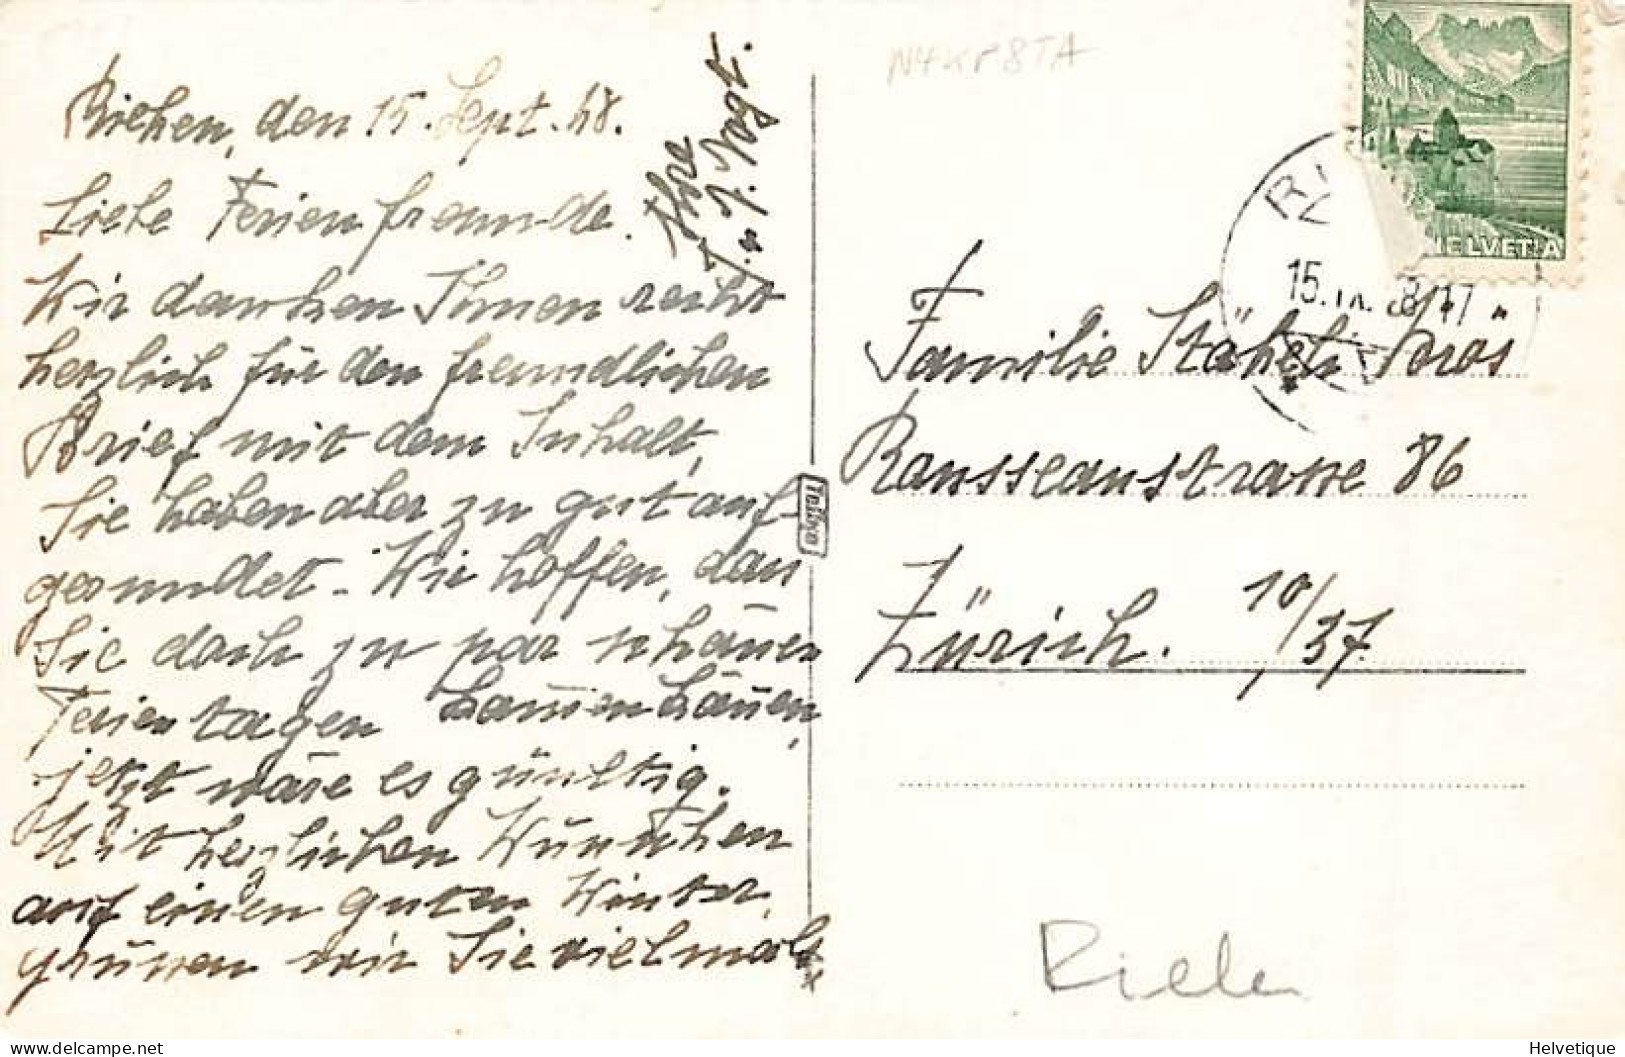 Riehen, den 15. Sept. 48.
Liebe Ferienfreunde.
Wir danken Ihnen recht
herzlich für den freundlichen
Brief mit dem Inhalt,
Sie haben aber zu gut auf-
gerundet. Wir hoffen, dass
Sie doch zu par schönen
Ferientagen kommen können,
jetzt wäre es günstig.
Mit herzlichen Wünschen
auf einen guten Winter,
grüssen wir Sie vielmals
Ihre
J. u. J. Vogt.
N4KF8TA
HELVETIA
15.IX. 8/17
Familie Stäheli
Rousseaustrasse 86
Zürich. 10/37
Riehen
delcampe.net
Helvetique